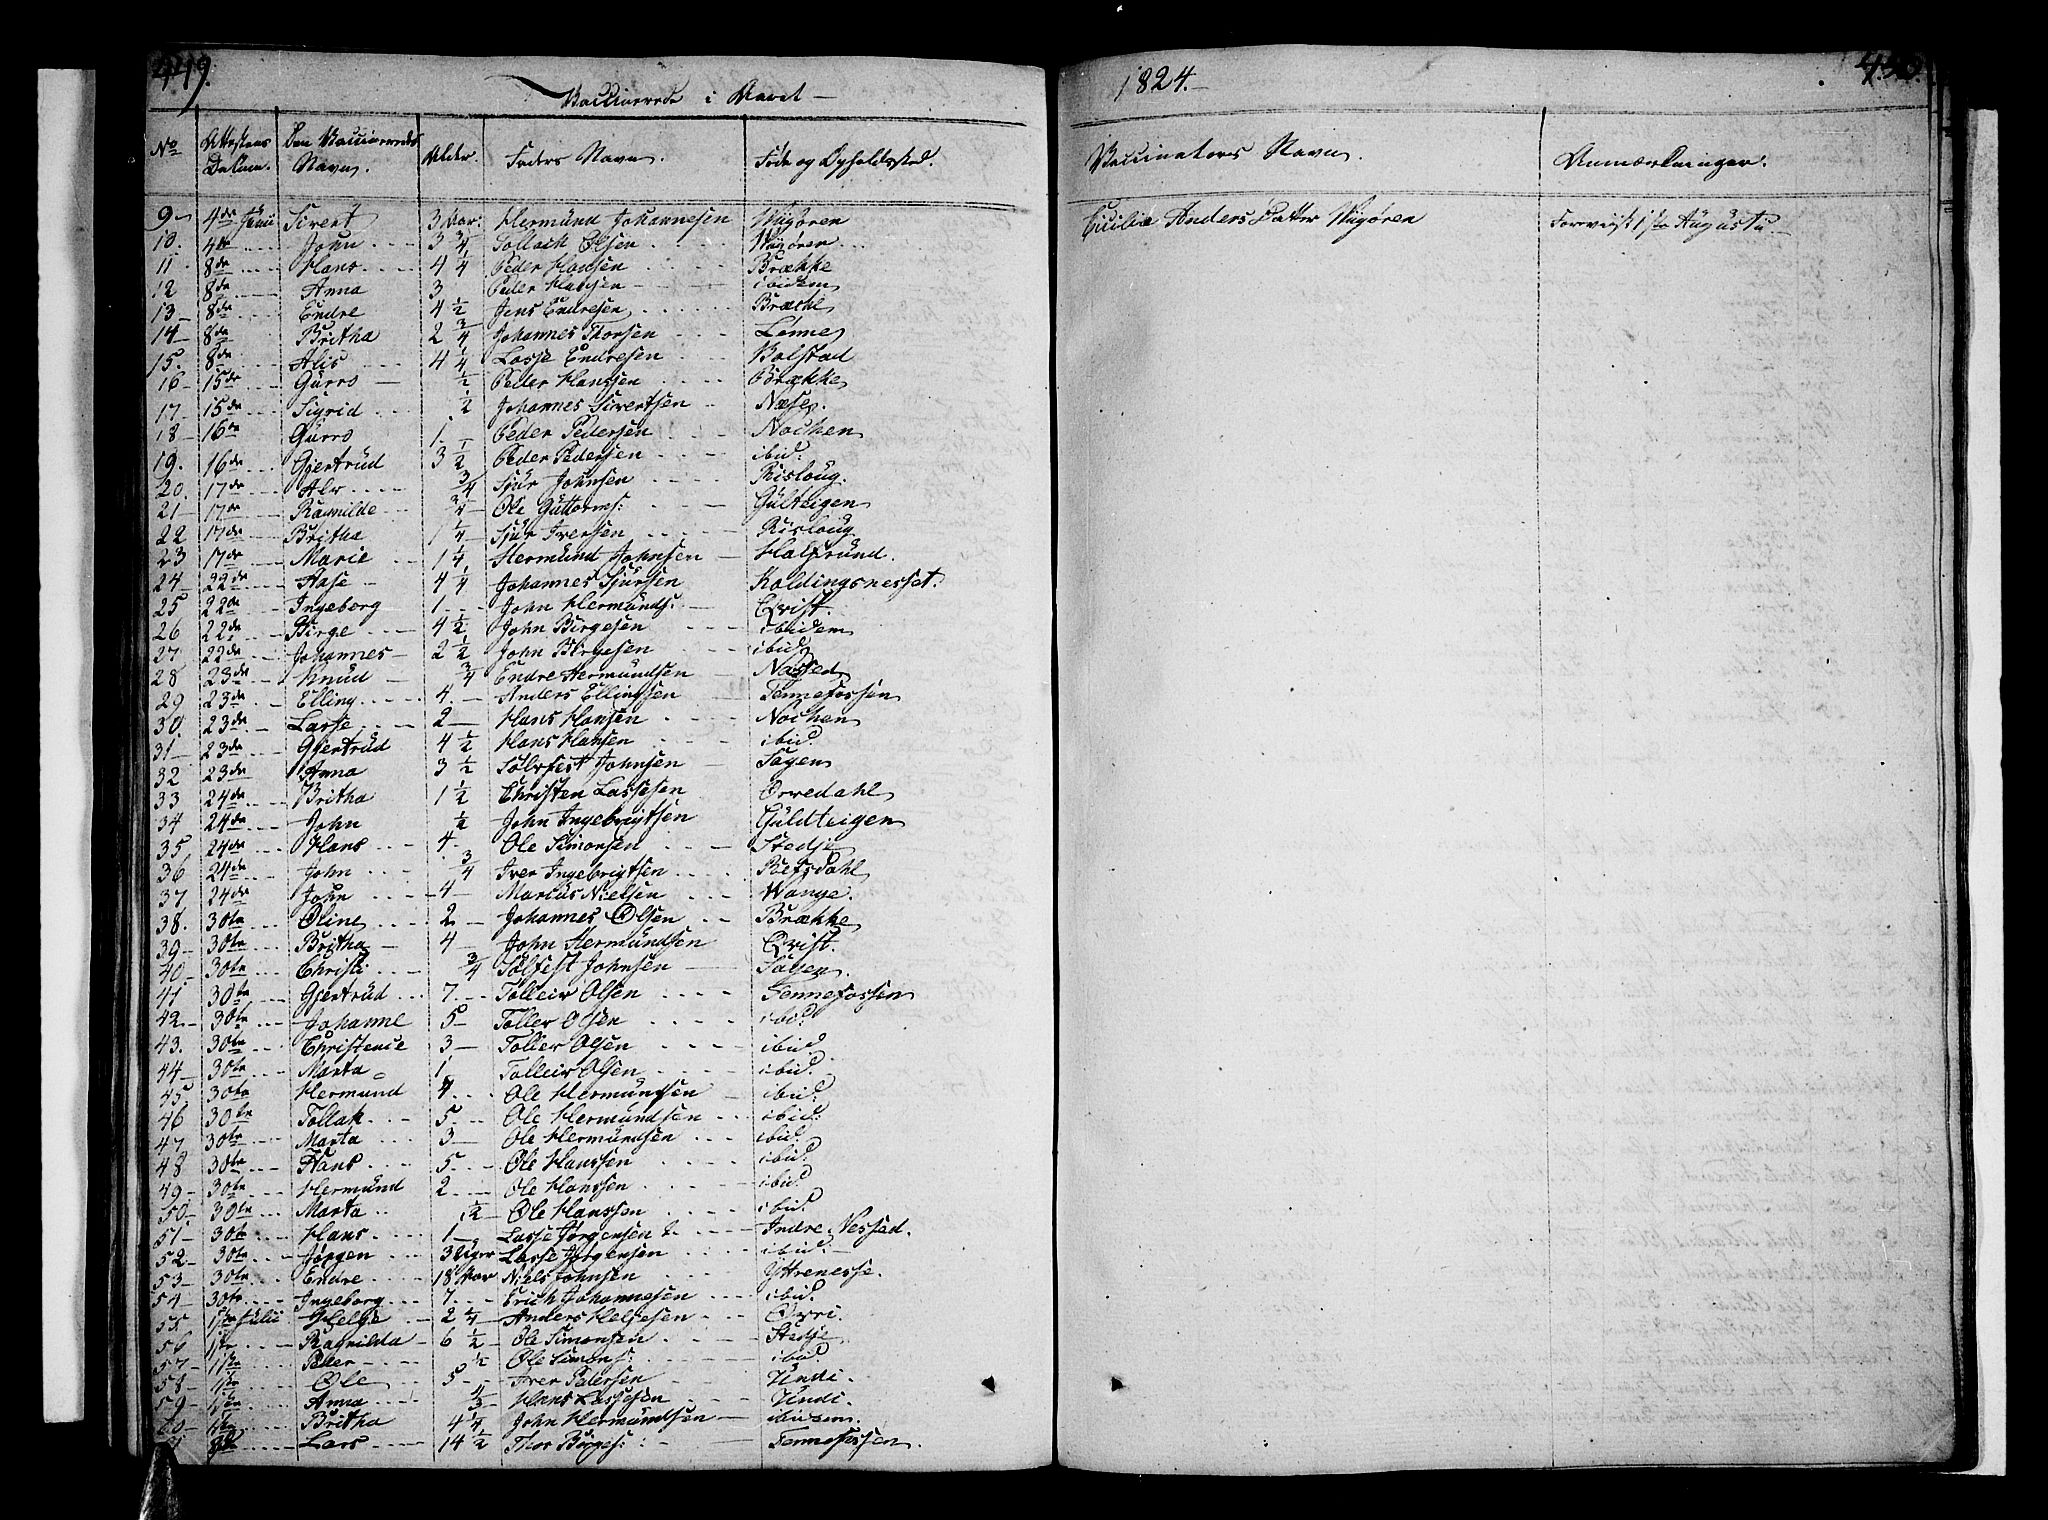 449.
Vaccinerede i Aaret
1824.
No Attestens Datum. Den Vaccineredes Navn. Alder. Faders Navn. Føde og Opholdssted. Vaccinateurs Navn. Anmærkninger.
9 4de Junii Sivert 3 Aar. Hermund Johannesen Wigøren Cicilia Anders Datter Wigøren
10. 4de John 3 3/4 Tollach Olsen Wigøren
11 8de Hans 4 1/4 Peder Hansen Brække
12 8de Anna 3 Peder Hansen ibidem
13 8de Endre 4 1/2 Jens Endresen
14 8de Britha 2 3/4 Johannes Thorsen Lønne
15. 8de Alis 4 1/4 Lasse Endresen Bolstad
16 15de Gurro 1/2 Peder Hanssen Brække
17 15de Sigrid 1/2 Johannes Sivertsen Næse.
18 16de Gurro 1. Peder Pedersen Nochen
19. 16de Giertrud 3 1/2 Peder Pedersen ibid:
20. 17de Alv 3/4 Sjur Johnsen Risloug.
21 17de Ragnilde 3/4 Ole Guttorms: Gulteigen
22 17de Britha 1 1/4 Sjur Iversen Risloug
23 17de Marie 1 1/4 Hermund Johnsen Holsrund.
24 22de Aase 4 1/4 Johannes Sjursen Koldingsnesset.
25 22de Ingeborg 1 John Hermunds: Qvist
26 22de Birge 4 1/2 John Birgesen ibidem
27 22de Johannes 2 1/2 John Birgesen ibid
28 23de Knud 3/4 Endre Hermundsen Næssed
29 23de Elling 4. Anders Ellingsen Tennefossen
30. 23de Lasse 2 Hans Hansen Nochen
31 23de Giertrud 4 1/2 Hans Hansen ibid.
32 23de Anna 3 1/2 Sølvfest Johnsen Sagen
33 24de Britha 1 1/2 Christen Lassesen Orredahl
34 24de John 1/2 John Ingebrigtsen Guldteigen
35 24de Hans 4. Ole Simonsen Stedje
36 24de John 3/4 Iver Ingebrigtsen
37 24de John 4 Marcus Nielsen Wange.
38. 30te Oline 2 Johannes Olsen Brække
39 30te Britha 4 John Hermundsen Qvist.
40 30te Christi 3/4 Sølfest Johnsen Sagen.
41 30te Giertrud 7. Tolleiv Olsen Tennefossen
42. 30te Johanne 5 Toller Olsen ibid.
43. 30te Christence 3 Toller Olsen ibid.
44 30te Marta 1 Tolleiv Olsen ibid.
45. 30te Hermund 7. Ole Hermundsen ibid.
46 30te Tollak 5. Ole Hermundsen ibid:
47 30te Marta 3 Ole Hermundsen ibid.
48 30te Hans 5. Ole Hanssen ibid.
49. 30te Hermund 2. Ole Hanssen ibid
50 30te Marta 1/2 Ole Hanssen ibid.
51 30te Hans 1 Lasse Jørgensen Indre Nessed.
52. 30te Jørgen 3 Uger Lasse Jørgensen ibid:
53 30te Endre 18 Aar Niels Johnsen Yttrenesse.
54 30te Ingeborg 7. Erich Johannesen ibid.
55. 1ste Julii Helge 2 Anders Helgesen Øvri.
56 1ste Ragnilda 6 1/2 Ole Simonsen Stedje
57 1ste Peder 1/2 Ole Simons: ibid.
58 1ste Ole 5 Iver Pedersen Undi.
59 1ste Anna Hans Lassesen Undi.
60 1ste Britha 4 1/4 John Hermundsen ibidem.
Lars 14 1/2 Thor Birges: Tennefossen.